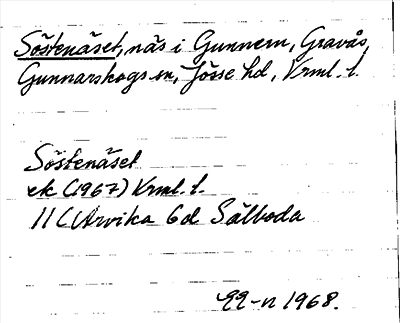 Söstenäset, näs i Gunnern, Gravås,
Gunnarskogs sn, Jösse hd, Vrml. l.
Söstenäset
ek (1967) Vrml. l.
11 C Arvika 6d Sälboda
1968.